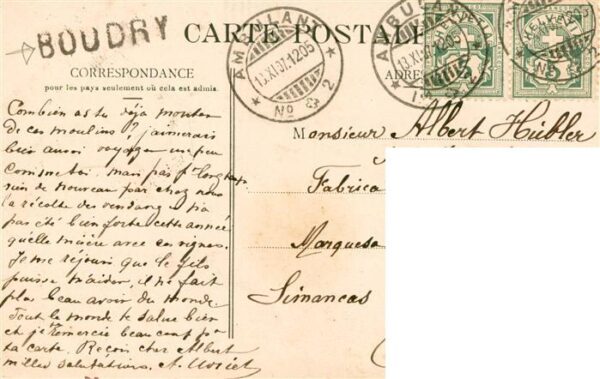 BOUDRY
CARTE POSTAL
AMBULANT
13.XI.07.12 05
No 2
CORRESPONDANCE
pour les pays seulement où cela est admis.
ADRES
AMBULANT
13.XI.07.12 05
HELVETIA
5
5
Monsieur Albert Hubler
Fabrica
Marquesa
Simancas
Combien as tu déjà monter
de ces moulins? j'aimerais
bien aussi voyager un peu
comme toi. mais pas pr longtemps
suis de nouveau par chez nous
la récolte des vendanges n'a
pas été bien forte cette année
quelle misère avec ces vignes.
Je me réjouis que le fils
puisse m'aider, il ne fait
plus beau avoir du monde.
Tout le monde te salue bien
et je remercie beaucoup pr
ta carte. Reçois cher Albert
milles salutations. A.